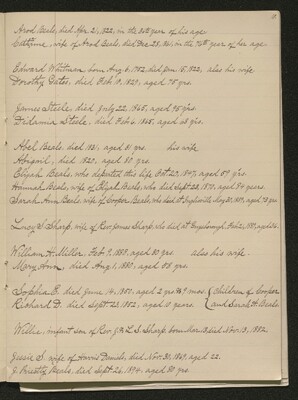 Arod Beals, died Apr. 2, 1822, in the 80th year of his age
wife of Arod Beals, died Dec. 28, in the 75th year of her age.
Edward Whitman, born Aug. 6, 1752, died Jan. 15, 1822, also his wife
Dorothy Gates, died Feb. 19, 1829, aged 75 yrs.
James Steele, died July 22, 1865, aged 95 yrs.
Didamia Steele, died Feb. 6, 1865, aged 68 yrs.
Abel Beals, died 1821, aged 51 yrs. his wife
Abigail, died 1820, aged 50 yrs.
Elijah Beals, who departed this life Oct. 20, 1847, aged 59 yrs.
Hannah Beals, wife of Elijah Beals, who died Sept. 28, 1870, aged 84 years.
Sarah Ann Beals, wife of Cooper Beals, who died at Inglisville aged 38 yrs.
Lucy S. Sharp, wife of Rev. James Sharp, who died at Guysborough Feb. 21, aged 26.
William H. Miller, Feb. 9, 1888, aged 80 yrs. also his wife
Mary Ann, died Aug. 1, 1880, aged 65 yrs.
Sophia R. died June 14, 1850, aged 2 yrs. 9 mos. Children of Cooper
Richard D. died Sept. 23, 1852, aged 10 years. and Sarah A. Beals
Willie, infant son of Rev. J. & L. S. Sharp, born Mar. died Nov. 13, 1882.
Jessie S. wife of Harris Daniels, died Nov. 30, 1869, aged 22.
J. Priestly Beals, died Sept. 26, 1894, aged 80 yrs.